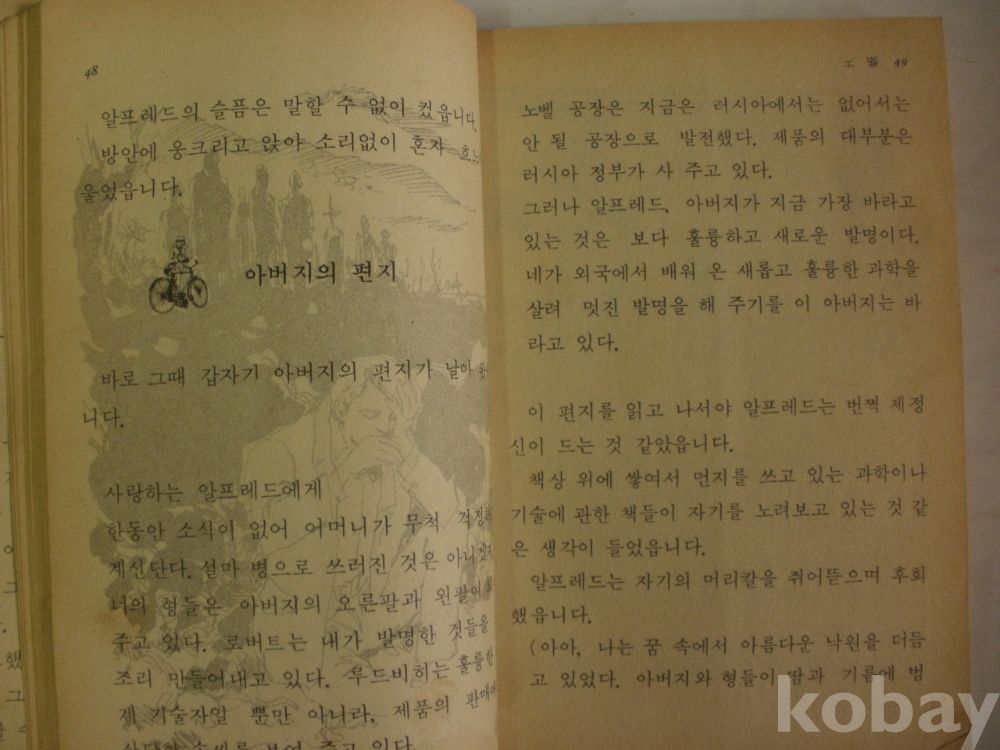 48
알프레드의 슬픔은 말할 수 없이 컸읍니다.
방안에 웅크리고 앉아 소리없이 혼자
울었읍니다.
아버지의 편지
바로 그때 갑자기 아버지의 편지가 날아
니다.
사랑하는 알프레드에게
한동안 소식이 없어 어머니가 무척
계신단다. 설마 병으로 쓰러진 것은
너의 형들은 아버지의 오른팔과
주고 있다. 로버트는 내가 발명한 것들을
조리 만들어내고 있다. 루드비히는 훌륭한
제 기술자일 뿐만 아니라. 제품의 판매에
주고 있다.
49
노벨 공장은 지금은 러시아에서는 없어서는
안 될 공장으로 발전했다. 제품의 대부분은
러시아 정부가 사 주고 있다.
그러나 알프레드, 아버지가 지금 가장 바라고
있는 것은 보다 훌륭하고 새로운 발명이다.
네가 외국에서 배워 온 새롭고 훌륭한 과학을
살려 멋진 발명을 해 주기를 이 아버지는 바
라고 있다.
이 편지를 읽고 나서야 알프레드는 번쩍 제정
신이 드는 것 같았읍니다.
책상 위에 쌓여서 먼지를 쓰고 있는 과학이나
기술에 관한 책들이 자기를 노려보고 있는 것 같
은 생각이 들었읍니다.
알프레드는 자기의 머리칼을 쥐어뜯으며 후회
했읍니다.
(아아, 나는 꿈 속에서 아름다운 낙원을 더듬
고 있었다. 아버지와 형들이 땀과 기름에 범
kobay